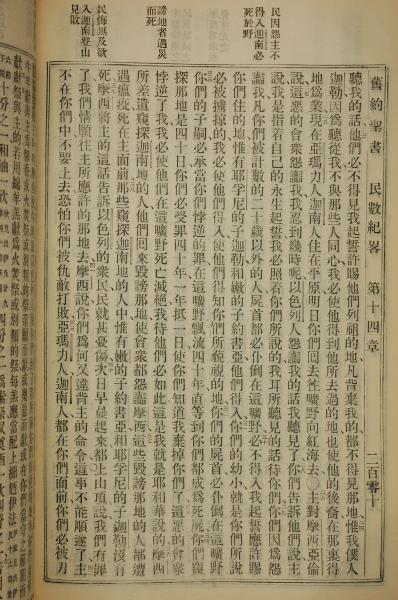 舊約聖書 民數紀畧 第十四章 二百零十
民因怨主不
得入迦南必
死於野
謗地者遇災
而死
民悔無及欲
入迦南登山
見敗
聽我的話他們必不得見我起誓許賜他們列祖的地凡背棄我的都不得見那地惟我僕人
迦勒因爲聽從我不與那些人同心我必使他得到他所去過的地也使他的後裔在那裏得
地爲業現在亞瑪力人迦南人住在平原明日你們回去徃曠野向紅海去○主對摩西亞倫
說這惡的會衆怨讟我我忍到幾時呢以色列人怨讟我的話我聽見了你們告訴他們說主
說我主是指着自己的永生起誓我必照着你們所說的我耳所聽見的話待你們你們因爲怨
讟我凡你們被計數的二十歲以外的人屍首都必仆倒在這曠野必不得入我起誓應許賜
你們住的地惟有耶孚尼的子迦勒和嫩的子約書亞他們得入你們的幼小就是你們所說
必被擄掠的我必使他們得入使他們得知你們所藐視的地你們的屍首必仆倒在這曠野
你們的子嗣必承當你們悖逆的罪在這曠野飄流四十年直等到你們都成爲死屍你們窺
探那地是四十日你們必受罪四十年一年抵一日使你們知道我棄掉你們了這惡的會衆
悖逆了我我必使他們在這曠野死亡滅絕我待他們必如此這是我就是耶和華說的摩西
所差遣窺探迦南地的人他們回來毀謗那地使會衆都怨讟摩西這些毀謗那地的人都遭
遇瘟疫死在主面前那些窺探迦南地的人中惟有嫩的子約書亞和耶孚尼的子迦勒沒有
死摩西將主的這話告訴以色列的衆民民就甚憂傷次日早晨起來都上山頂說我們有罪
了我們情願徃主所應許的那地去摩西說你們爲何又違背主的命令這事不能順遂了主
不在你們中不要上去恐怕你們被仇敵打敗亞瑪力人迦南人都在你們面前你們必被刃